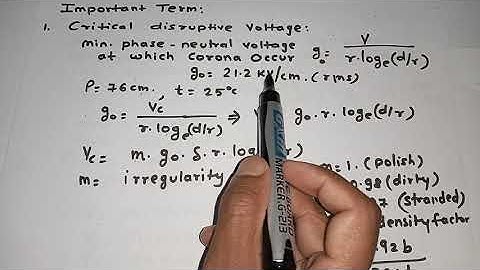 Important Term:
1. Critical disruptive Voltage:
min. phase - neutral voltage
at which corona occur g₀ = V / r.logₑ(d/r)
g₀ = 21.2 KV/cm. (rms)
P = 76 cm. t = 25°c
g₀ = Vc / r.logₑ(d/r) ⇒ g₀.r.logₑ(d/r)
Vc = m.g₀.δ.r.log r)
m = irregularity m = 1. (polish)
0.98 (dirty)
7 (stranded)
density factor
92 b
MARKER G-2/3